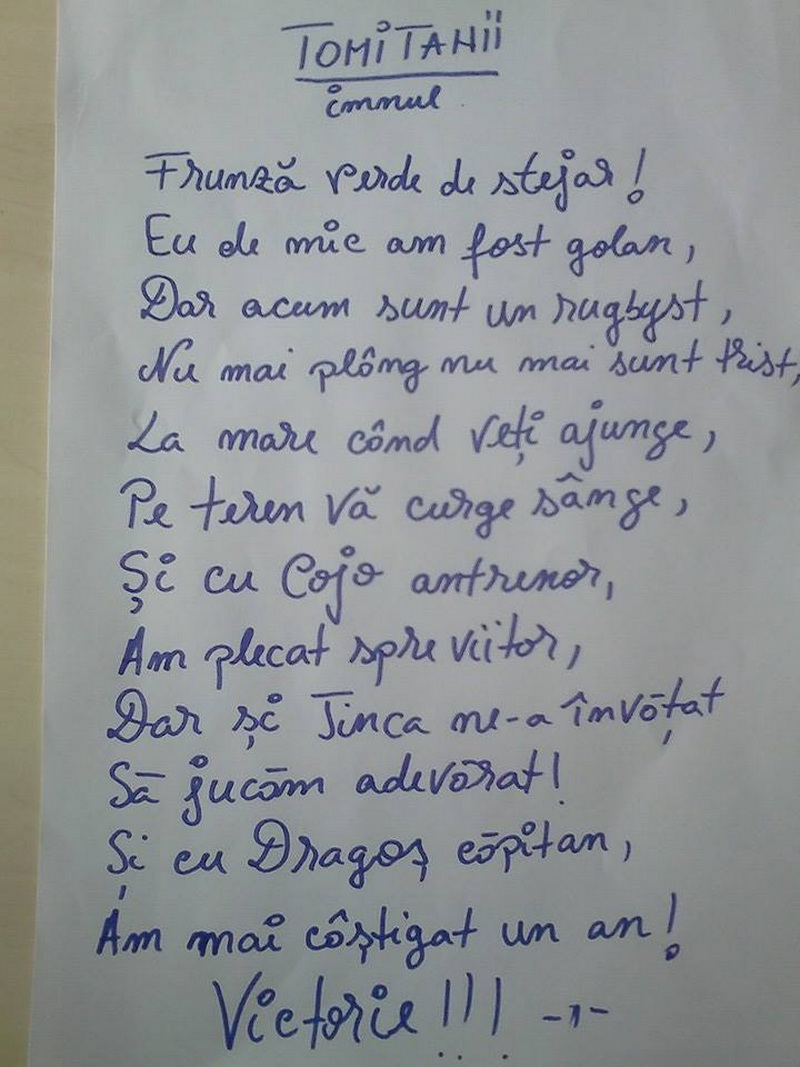 TOMITANII
imnul
Frunză verde de stejar!
Eu de mic am fost golan,
Dar acum sunt un rugbyst,
Nu mai plâng nu mai sunt trist,
La mare când veți ajunge,
Pe teren vă curge sânge,
Și cu Cojo antrenor,
Am plecat spre viitor,
Dar și Tinca ne-a învățat
Să jucăm adevărat!
Și cu Dragoș căpitan,
Am mai câștigat un an!
Victorie!!! -1-